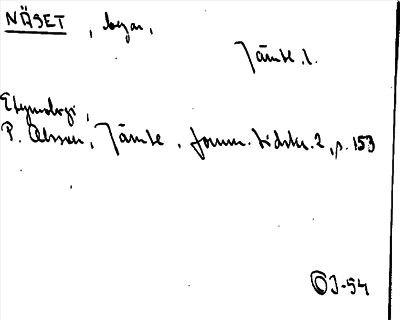 NÄSET, begr.,
Jämtl.
Etymologi,
P. Olsson, Jämtl. fornm. tidskr. 2, p. 153
OJ-54